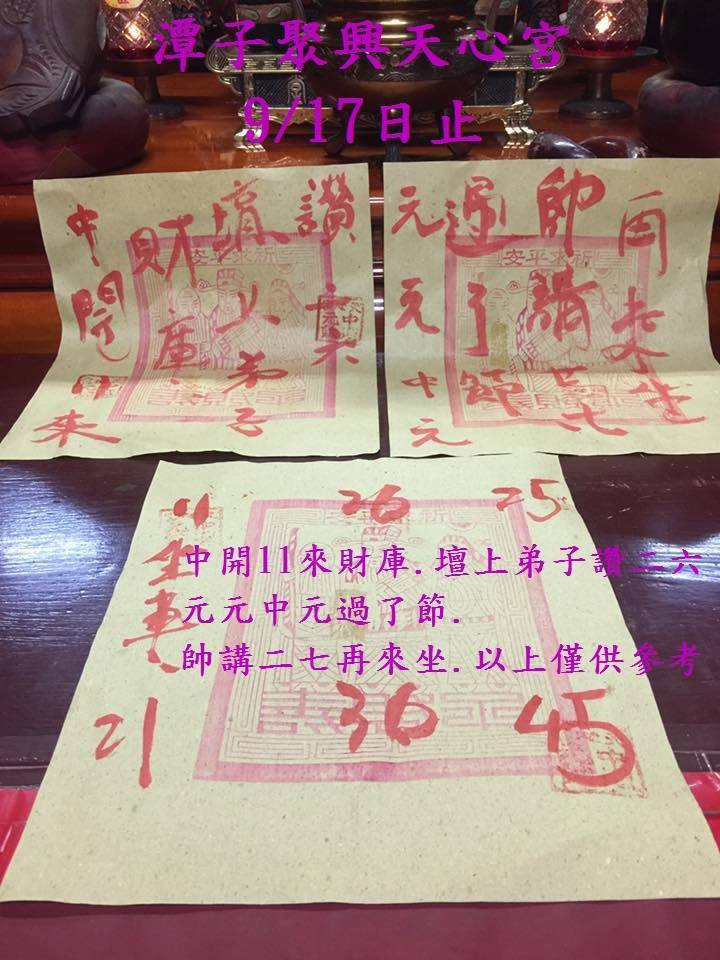 潭子聚興天心宮
9/17日止
中開11來
財庫
壇上弟子
讚二六
元元中元
過了節
帥講二七
再來坐
祈求平安
祈求平安
11 26 25
全車
21 36 45
中開11來財庫.壇上弟子讚二六
元元中元過了節.
帥講二七再來坐.以上僅供參考